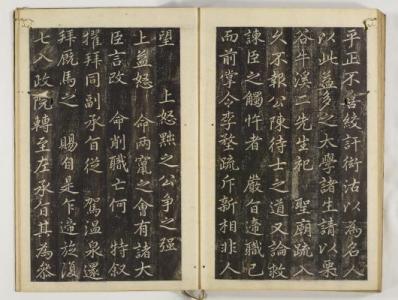 平正不喜絞訐衒沽以為名人
以此益多之太學諸生請以栗
谷牛溪二先生祀 聖廟疏入
久不報公陳待士之道又論救
諫臣之觸忤者 嚴旨遞職已
而前掌令李 疏斥新相非人
望 上怒黜之公爭之强
上益怒 命兩竄之會有諸大
臣言改 命削職亡何 特叙
擢拜同副承旨從 駕溫泉還
拜厩馬之 賜自是乍遞旋復
七入政院轉至左承旨其為參